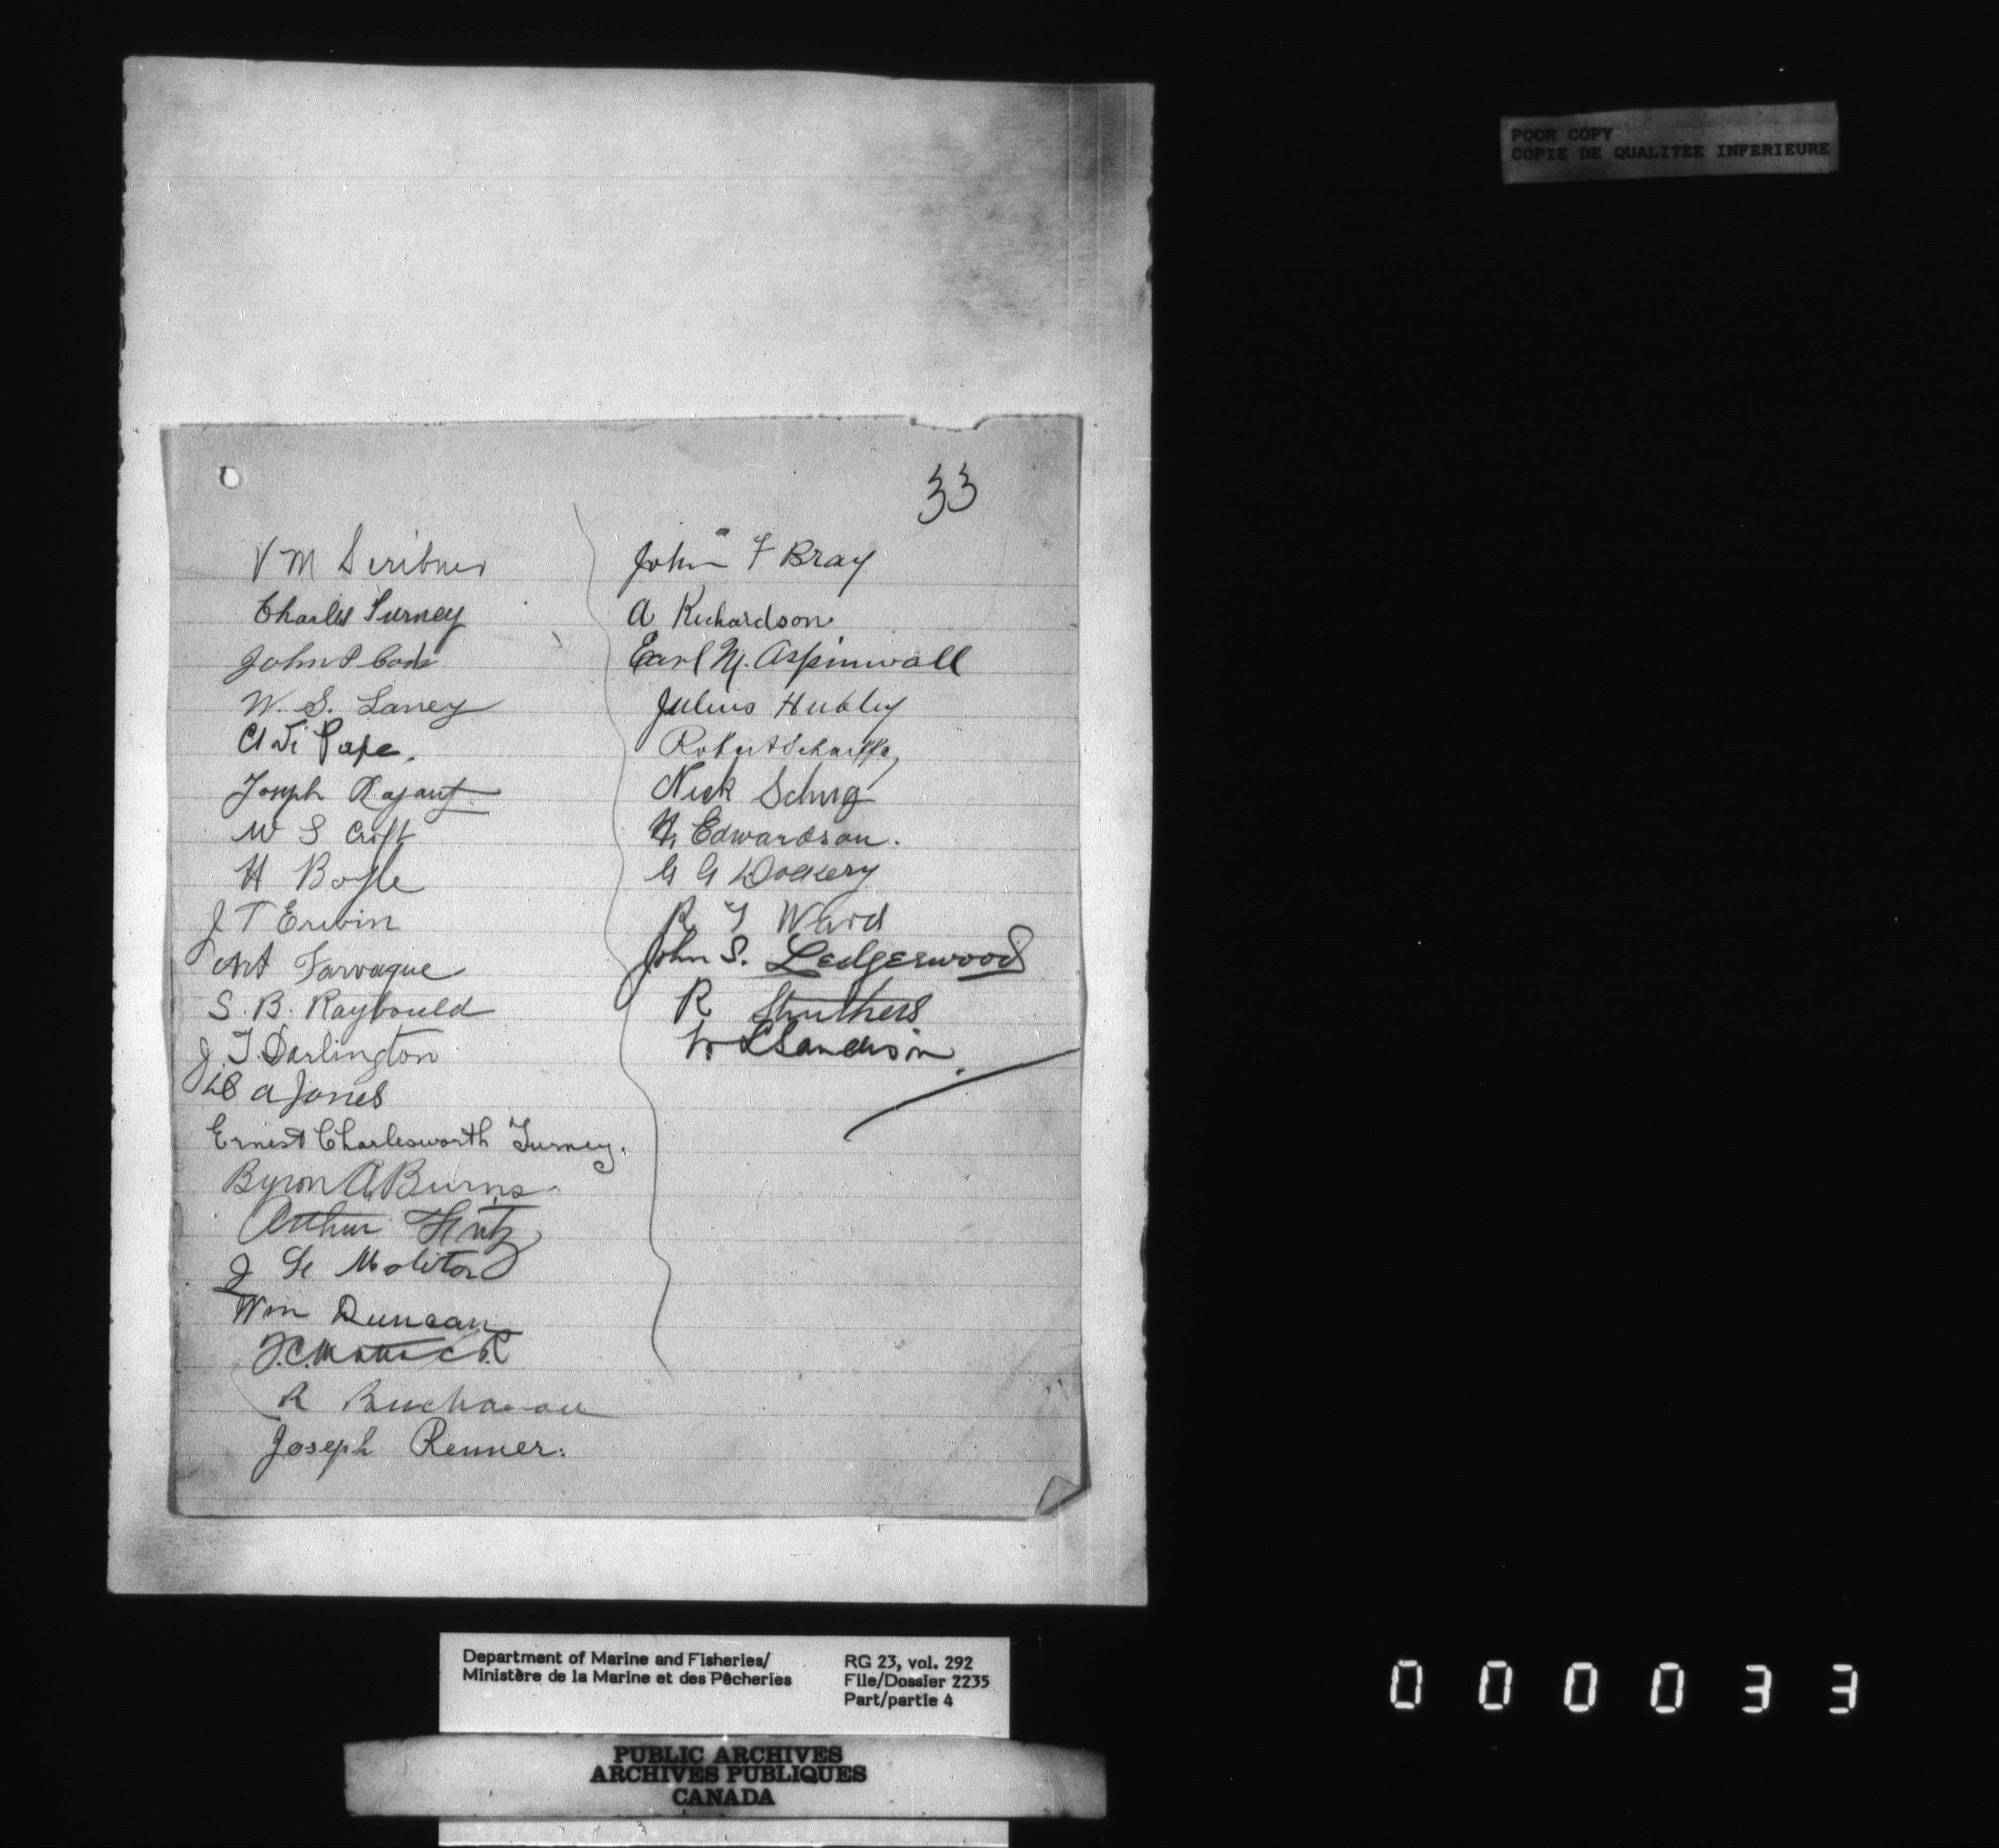 POOR COPY
COPIE DE QUALITEE INFERIEURE
33
V M Scribner
Charles Turney
John P Cook
W. S. Laney
Pope.
Joseph
W S Croft
H Boyle
J T Erwin
Art Farvaque
S. B. Raybould
J. T. Darlington
A Jones
Ernest Charlesworth Turney.
Byron A Burns
Arthur Hintz
J Molitor
Wm Duncan
F. C. Mattock
R Buchanan
Joseph Renner.
John F Bray
A Richardson
Earl M. Aspinwall
Julius Hubley
Robert
Nick Schug
Edwardson.
G G Dockery
R Y Ward
John S. Ledgerwood
R Struthers
W L Sanderson
Department of Marine and Fisheries/
Ministère de la Marine et des Pêcheries
RG 23, vol. 292
File/Dossier 2235
Part/partie 4
PUBLIC ARCHIVES
ARCHIVES PUBLIQUES
CANADA
000033